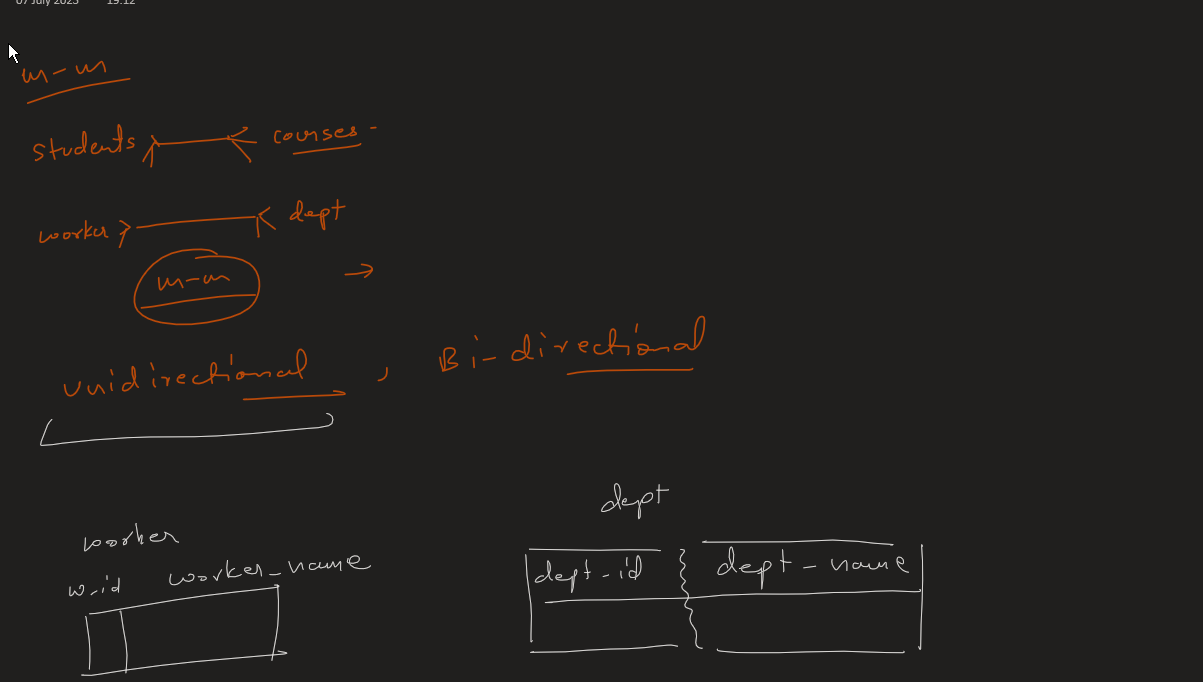 07 July 2023 19:12
m-m
Students courses
worker dept
m-m
unidirectional , Bi-directional
dept
worker
w-id worker_name
dept-id dept-name